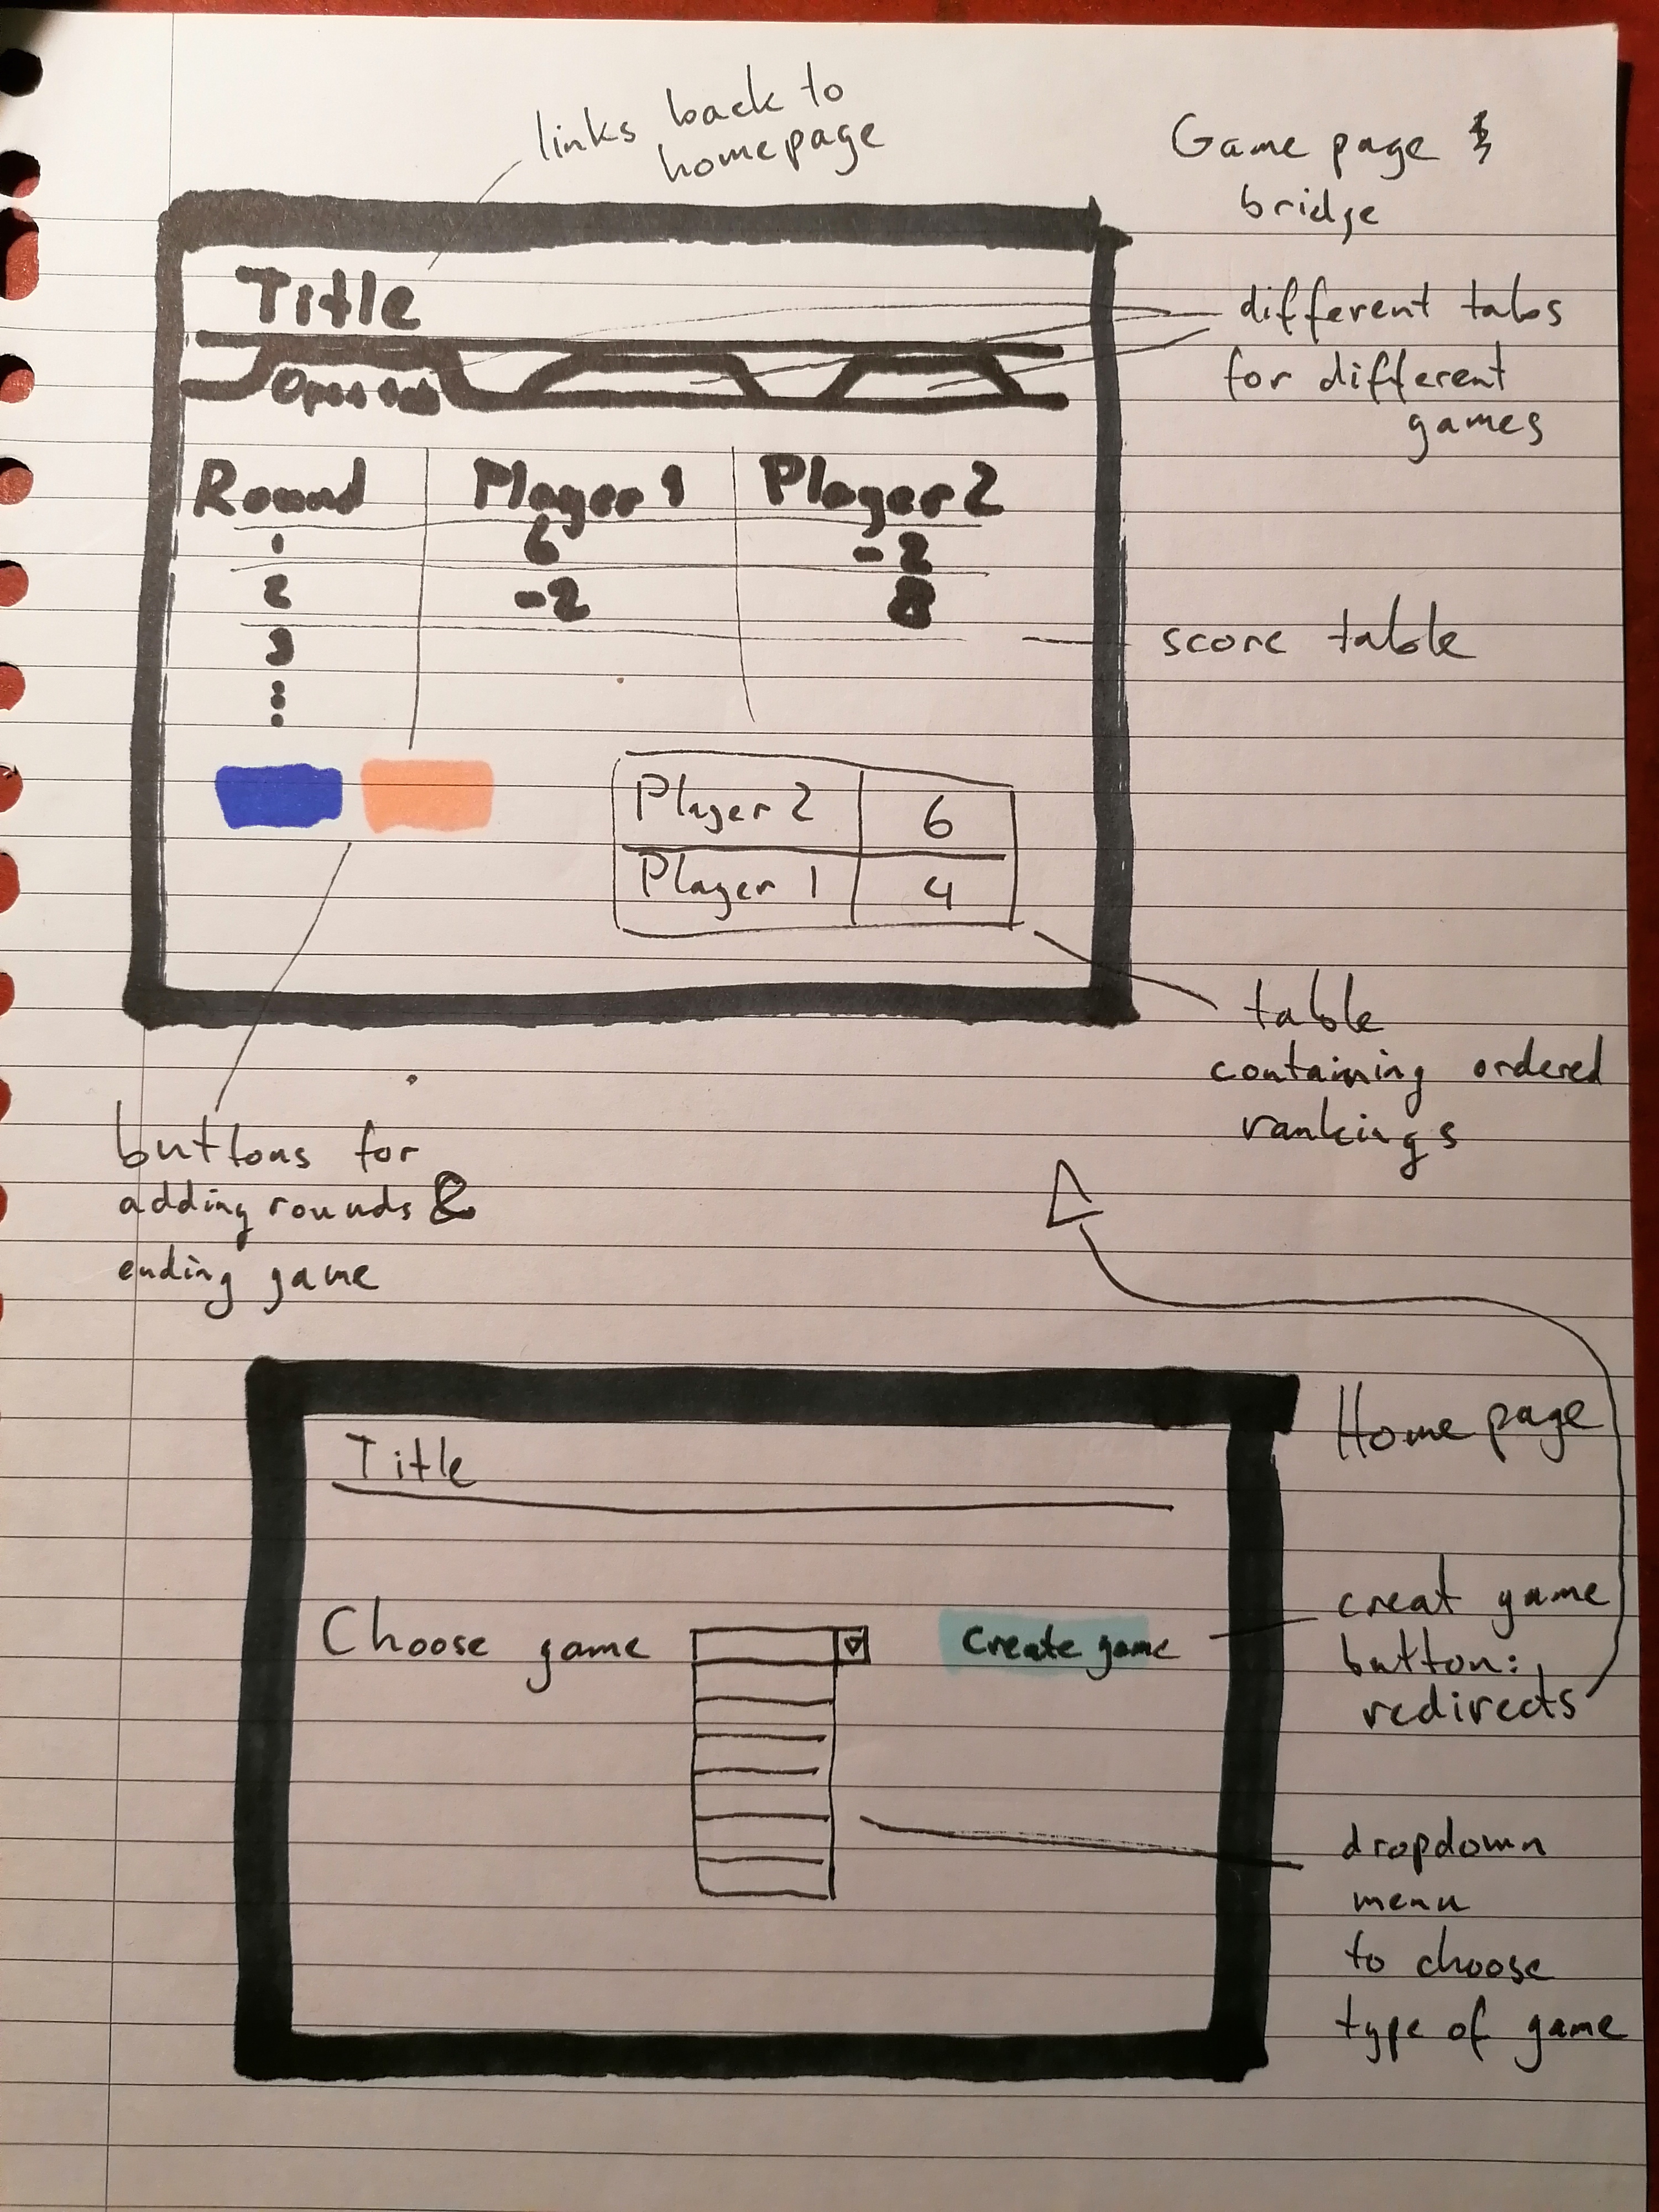 links back to
homepage
Game page
bridge
Title
different tabs
for different
games
Round Player 1 Player 2
1 6 -2
2 -2 8
3
score table
Player 2 6
Player 1 4
table
containing ordered
rankings
buttons for
adding rounds &
ending game
Home page
Title
Choose game
Create game
creat game
button:
redirects
dropdown
menu
to choose
type of game